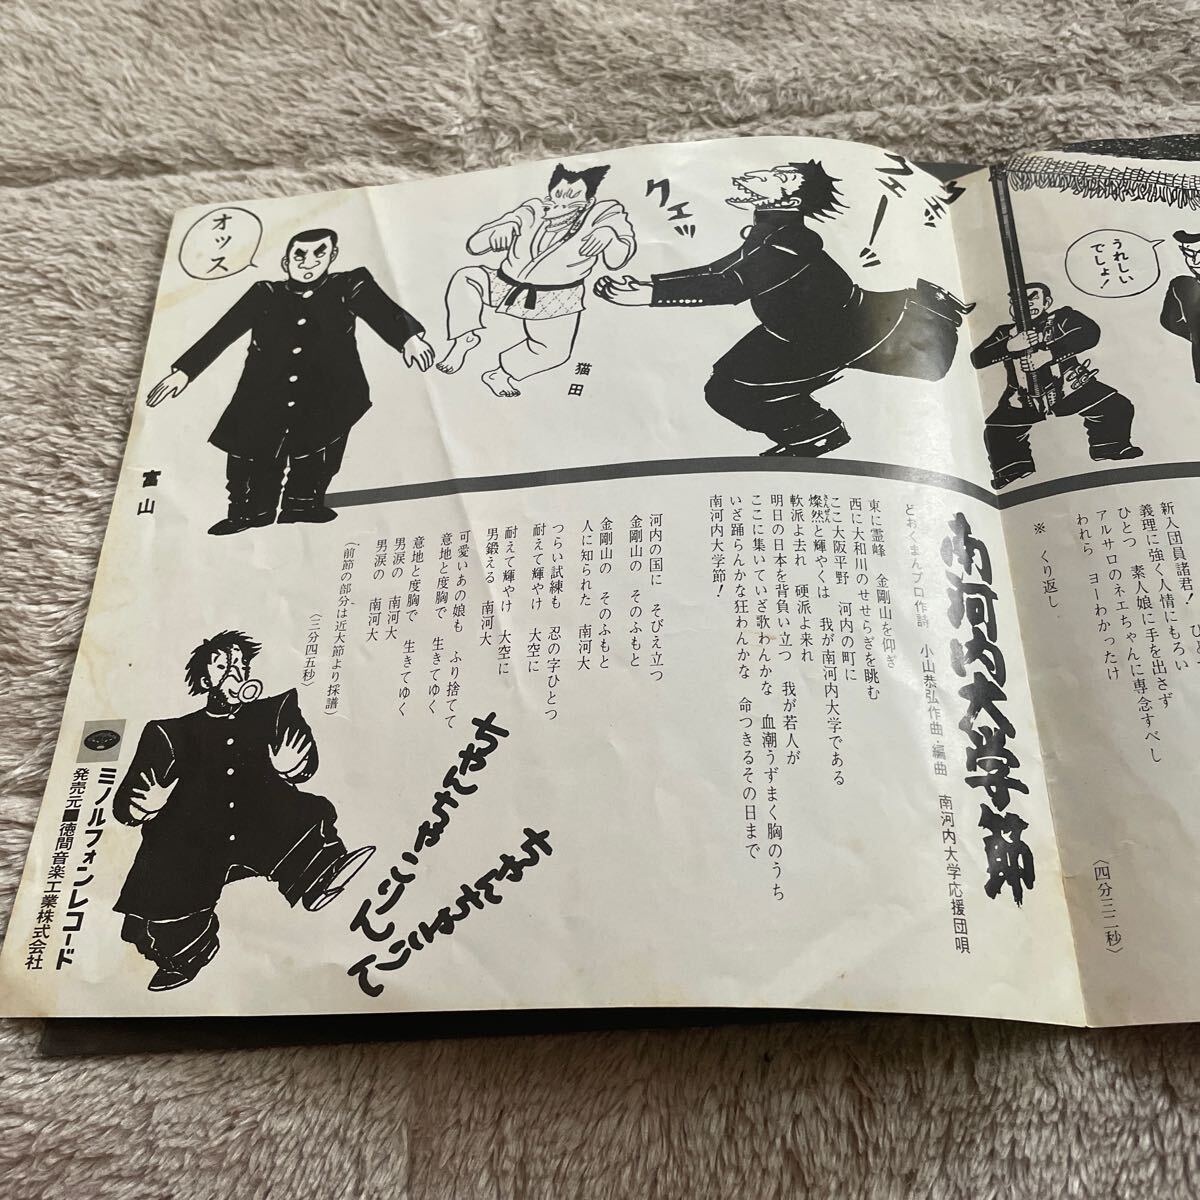 オッス
富山
猫田
クエッ
クェー
クェッ
うれしい
でしょ!
新入団員諸君!
義理に強く人情にもろい
ひとつ 素人娘に手を出さず
アルサロのネエちゃんに専念すべし
われら ヨーわかったけ
※ くり返し
〈四分三二秒〉
南河内大学節
どおくまんプロ作詩 小山恭弘作曲・編曲 南河内大学応援団唄
東に霊峰 金剛山を仰ぎ
西に大和川のせせらぎを眺む
ここ大阪平野 河内の町に
燦然と輝やくは 我が南河内大学である
さんぜん
軟派よ去れ 硬派よ来れ
明日の日本を背負い立つ 我が若人が
ここに集いていざ歌わんかな 血潮うずまく胸のうち
いざ踊らんかな狂わんかな 命つきるその日まで
南河内大学節!
河内の国に そびえ立つ
金剛山の そのふもと
金剛山の そのふもと
人に知られた 南河大
つらい試練も 忍の字ひとつ
耐えて輝やけ 大空に
耐えて輝やけ 大空に
男鍛える 南河大
可愛いあの娘も ふり捨てて
意地と度胸で 生きてゆく
意地と度胸で 生きてゆく
男涙の 南河大
男涙の 南河大
〈三分四五秒〉
(前節の部分は近大節より採譜)
ちゃんちゃこりん
ちゃんちゃこりん
ミノルフォンレコード
発売元■徳間音楽工業株式会社